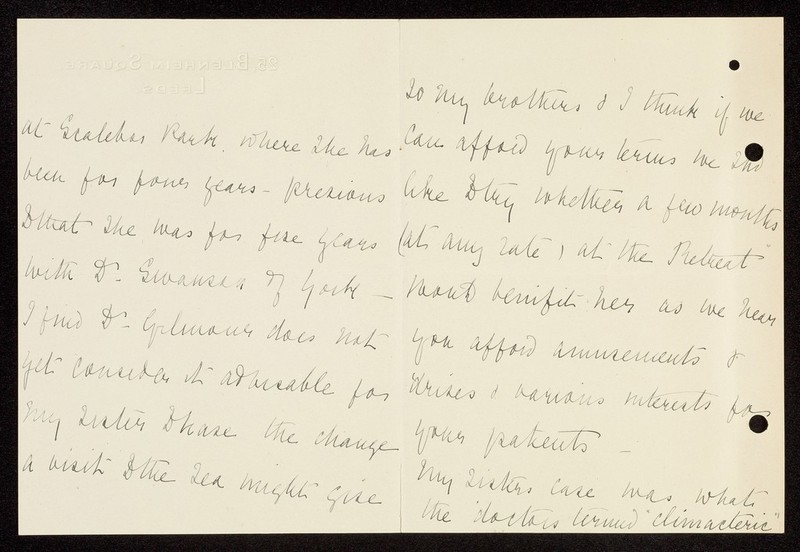 at Scalebor Park. where She has
been for four years - previous
to that She was for five years
with Dr. Swanson of York -
I find Dr. Gilmour does not
yet consider it advisable for
my Sister to have the change
a visit to the Sea might give
to my brothers & I think if we
can afford your terms we shd
like to try whether a few months
(at any rate) at the "Retreat"
would benifit her as we hear
you afford amusements &
drives & various interests for
your patients -
My Sisters case was what
the doctors termed "climacteric"
25 Blenheim Square
Leeds